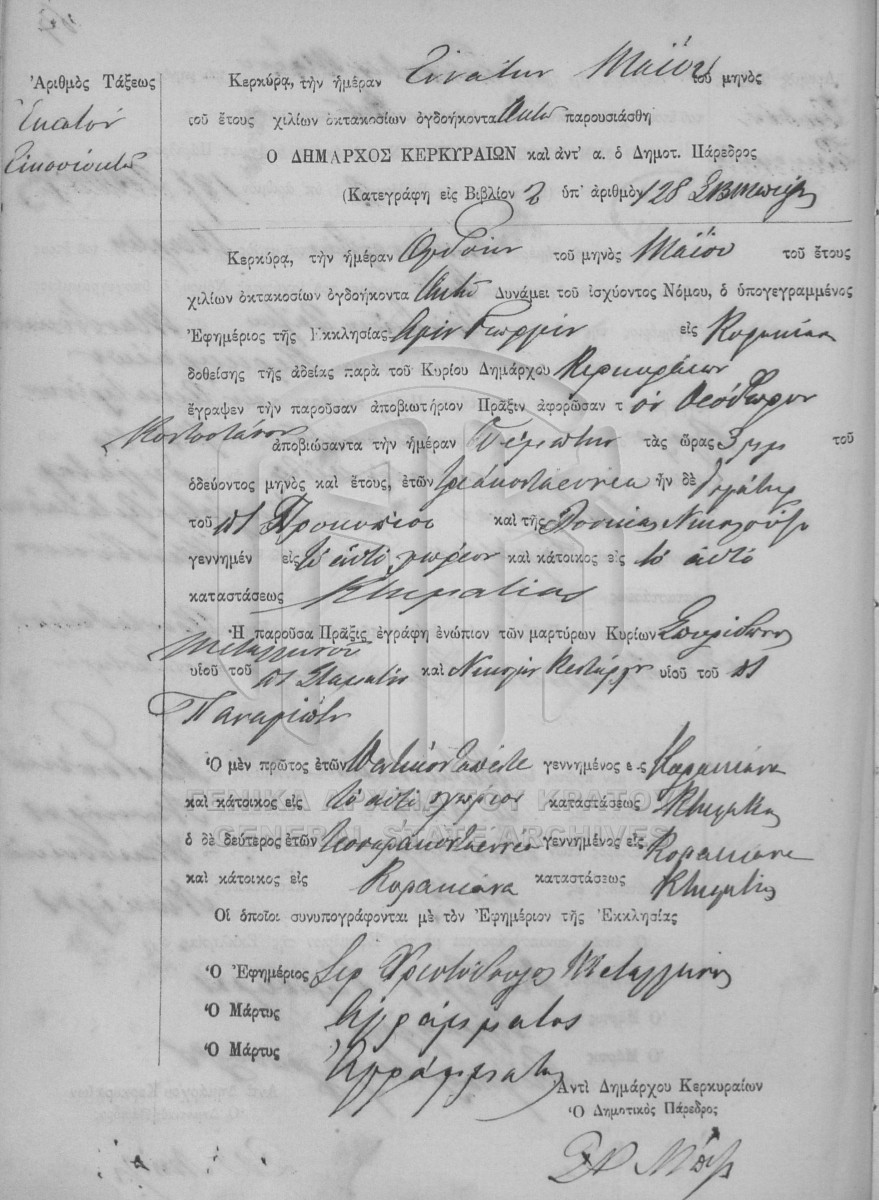 Ἀριθμὸς Τάξεως
Ἑκατόν
Εἰκοσιοκτώ
Κερκύρα, τὴν ἡμέραν Ἐννάτην Μαΐου τοῦ μηνὸς
τοῦ ἔτους χιλίων ὀκτακοσίων ὀγδοήκοντα Ὀκτώ παρουσιάσθη
Ὁ ΔΗΜΑΡΧΟΣ ΚΕΡΚΥΡΑΙΩΝ καὶ ἀντ' α. ὁ Δημοτ. Πάρεδρος
(Κατεγράφη εἰς Βιβλίον 2 ὑπ' ἀριθμὸν 128
Κερκύρα, τὴν ἡμέραν Ὀγδόην τοῦ μηνὸς Μαΐου τοῦ ἔτους
χιλίων ὀκτακοσίων ὀγδοήκοντα Ὀκτώ Δυνάμει τοῦ ἰσχύοντος Νόμου, ὁ ὑπογεγραμμένος
Ἐφημέριος τῆς Ἐκκλησίας Ἁγίου Γεωργίου εἰς Κορακιάνα
δοθείσης τῆς ἀδείας παρὰ τοῦ Κυρίου Δημάρχου Κερκυραίων
ἔγραψεν τὴν παροῦσαν ἀποβιωτήριον Πρᾶξιν ἀφορῶσαν τ όν Θεόδωρον
ἀποβιώσαντα τὴν ἡμέραν Πέμπτην τὰς ὥρας 3 μμ τοῦ
ὁδεύοντος μηνὸς καὶ ἔτους, ἐτῶν τριάκοντα εννέα ἦν δὲ
τοῦ πτ Προκοπίου καὶ τῆς
γεννημέν εἰς τό αὐτό χωρίον καὶ κάτοικος εἰς τό αὐτό
καταστάσεως Κτηματίας
Ἡ παροῦσα Πρᾶξις ἐγράφη ἐνώπιον τῶν μαρτύρων Κυρίων Σπυρίδωνος
Μεταλληνοῦ
υἱοῦ τοῦ πτ Σταμάτη καὶ Νικολάου υἱοῦ τοῦ πτ
Παναγιώτη
Ὁ μὲν πρῶτος ἐτῶν Πεντήκοντα πέντε γεννημένος εἰς Κορακιάνα
καὶ κάτοικος εἰς τό αὐτό χωρίον καταστάσεως Κτηματίας
ὁ δὲ δεύτερος ἐτῶν τεσσαράκοντα εννέα γεννημένος εἰς Κορακιάνα
καὶ κάτοικος εἰς Κορακιάνα καταστάσεως Κτηματίας
Οἱ ὁποῖοι συνυπογράφονται μὲ τὸν Ἐφημέριον τῆς Ἐκκλησίας
Ὁ Ἐφημέριος Ιερ Χριστόδουλος Μεταλληνός
Ὁ Μάρτυς Ἀγράμματος
Ὁ Μάρτυς Ἀγράμματος
Ἀντὶ Δημάρχου Κερκυραίων
Ὁ Δημοτικὸς Πάρεδρος
ΓΕΝΙΚΑ ΑΡΧΕΙΑ ΤΟΥ ΚΡΑΤΟΥΣ
GENERAL STATE ARCHIVES